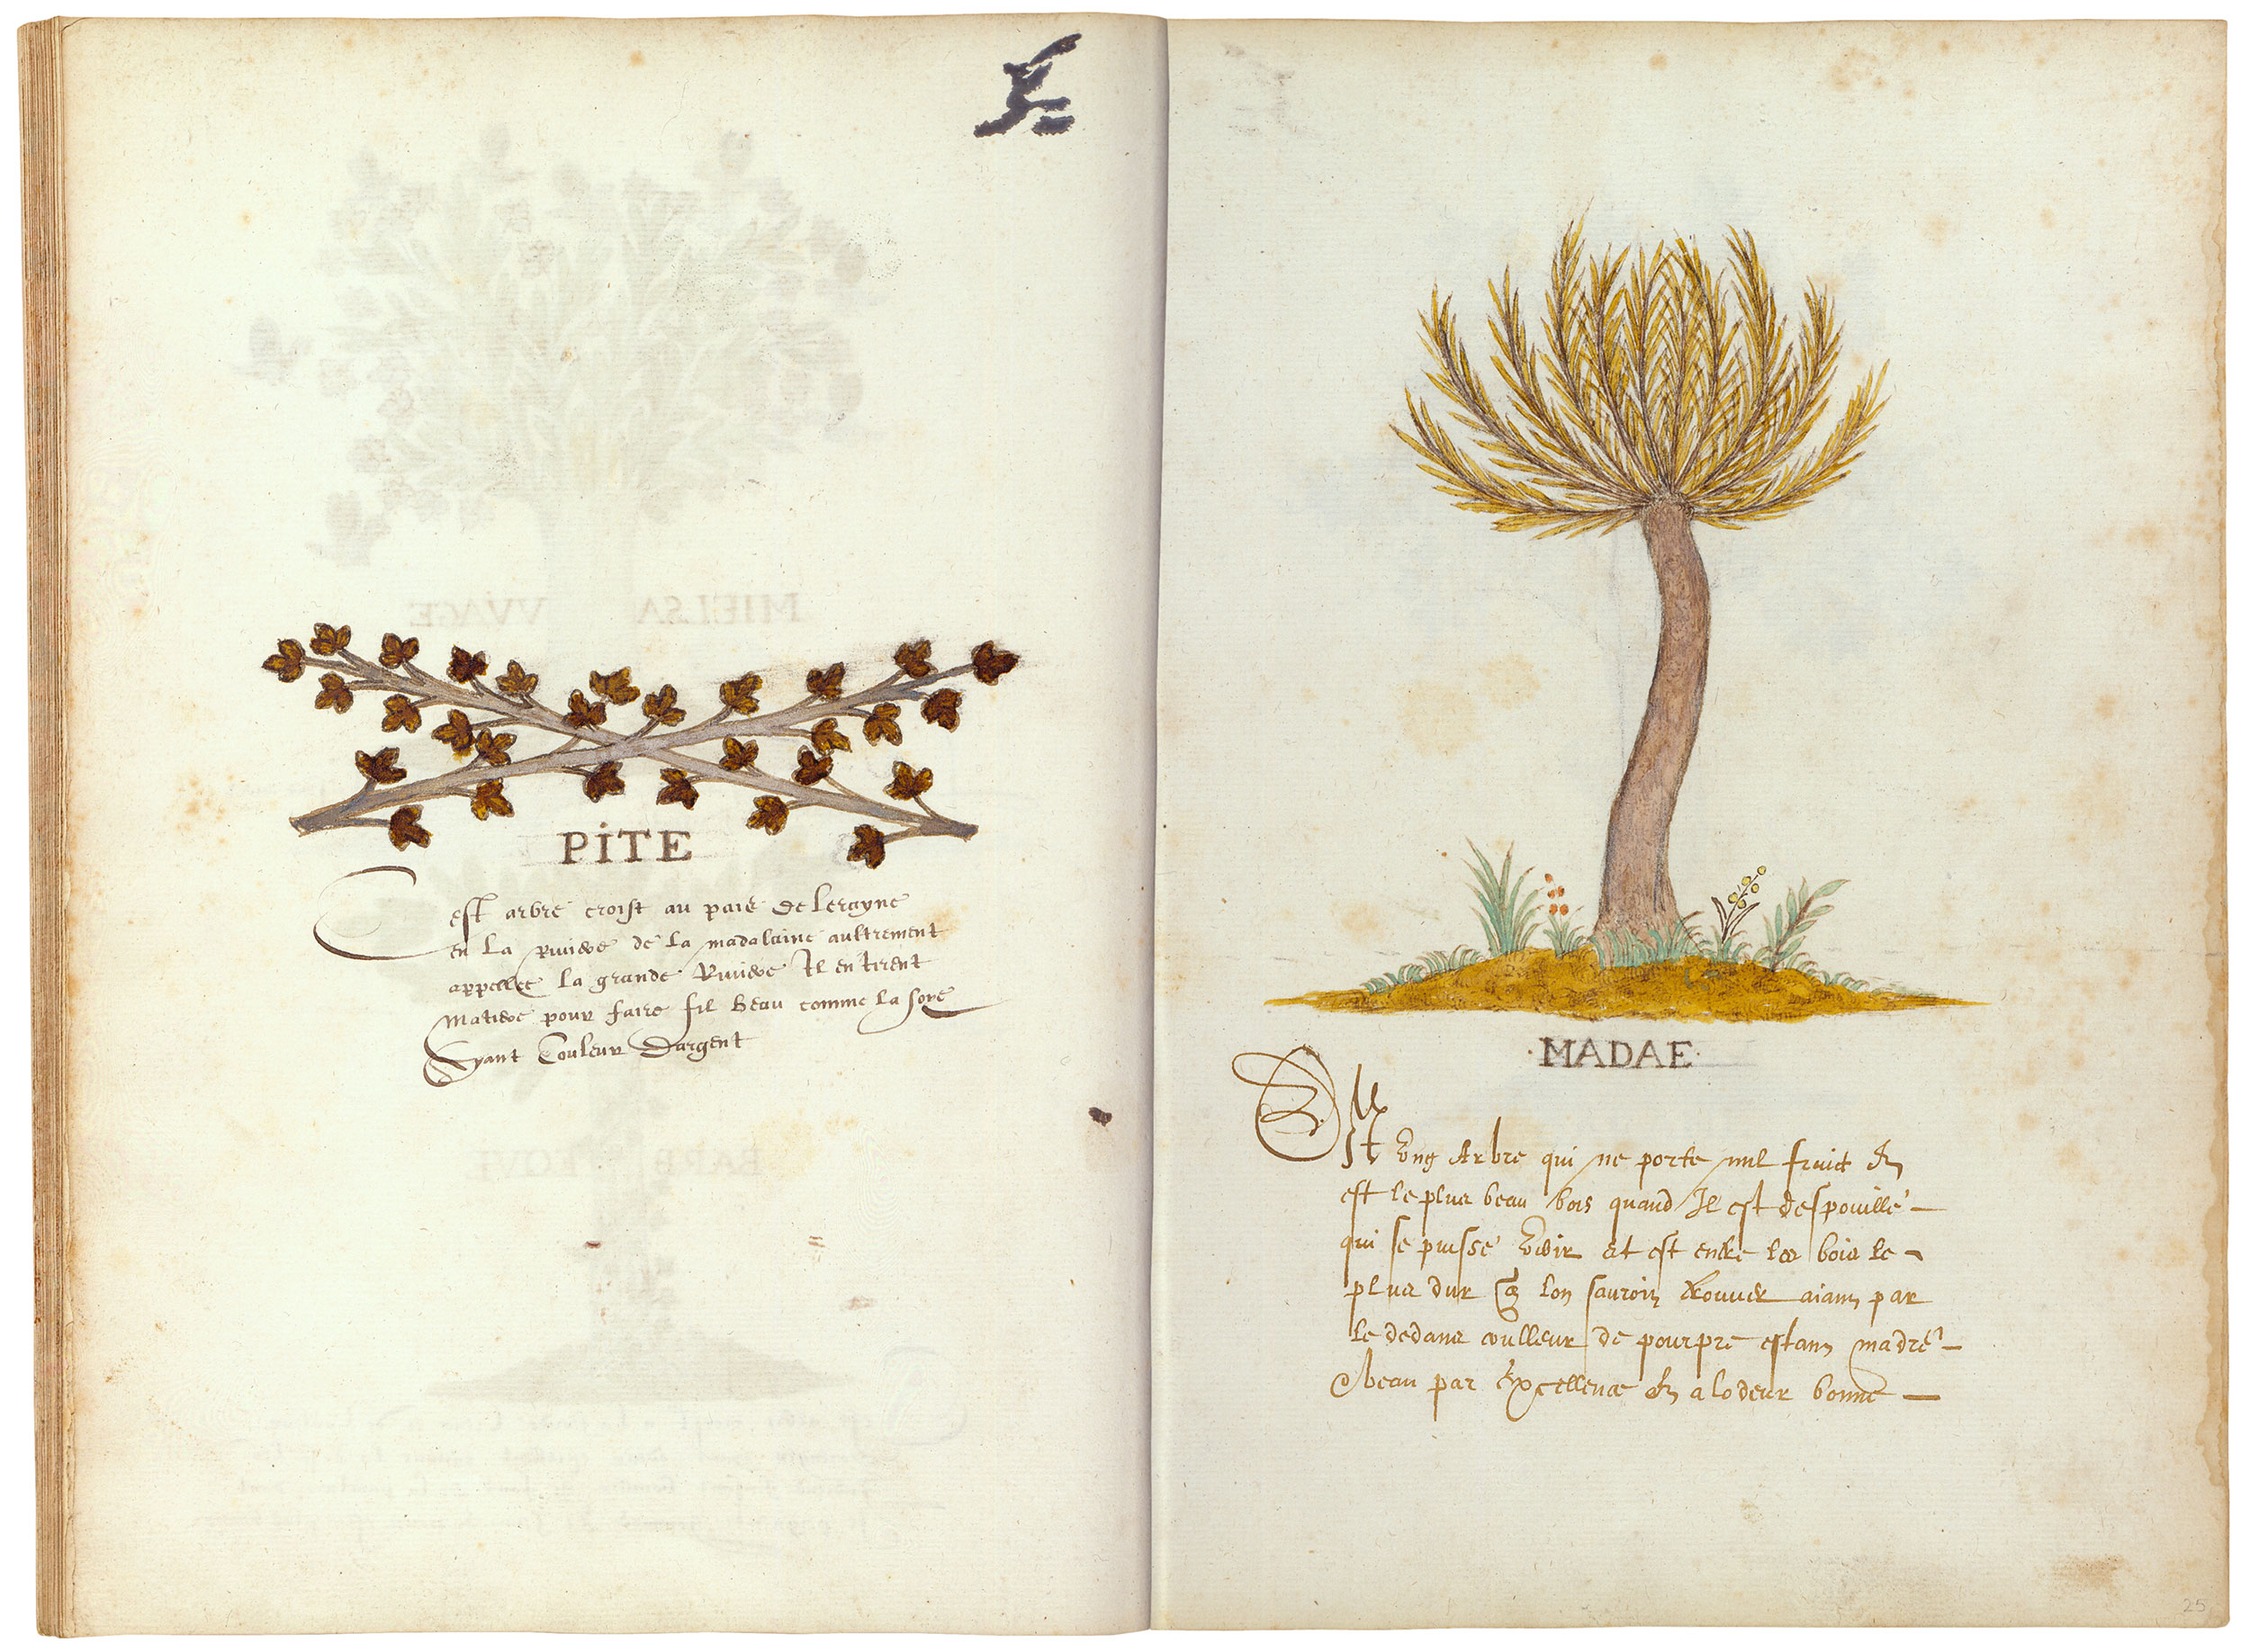 PITE
Cest arbre croist au pais de lerayne
en La Riviere de La madalaine aultrement
appellee La grande Riviere Il en tirent
Matiere pour faire fil beau comme La soye
Ayant Couleur Dargent
·MADAE·
Est ung Arbre qui ne porte nul fruict Et
est le plus beau bois quand Il est despouillé
qui se puisse voir et est entre les bois le
plus dur que lon sauroit trouver aiant par
le dedans coulleur de pourpre estant madré
beau par Excellence Et a lodeur bonne
25